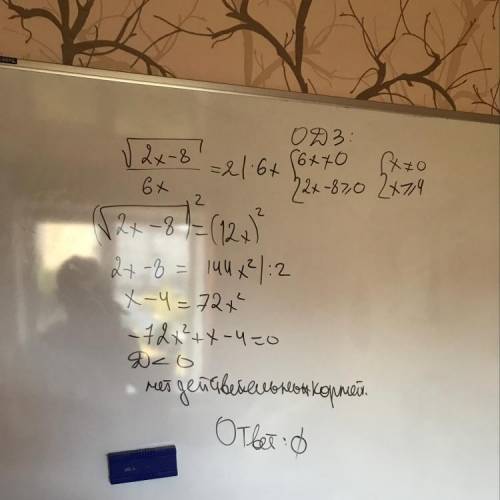 ОДЗ:
√(2x-8)/6x = 2 | · 6x { 6x≠0 { x≠0
{ 2x-8≥0 { x≥4
(√(2x-8))² = (12x)²
2x-8 = 144x² | :2
x-4 = 72x²
-72x²+x-4=0
D < 0
нет действительных корней.
Ответ: ∅